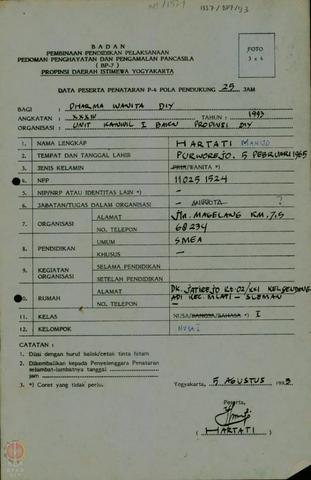 1337/BP7/93
BADAN
PEMBINAAN PENDIDIKAN PELAKSANAAN
PEDOMAN PENGHAYATAN DAN PENGAMALAN PANCASILA
( BP-7 )
PROPINSI DAERAH ISTIMEWA YOGYAKARTA
FOTO
3 x 4
DATA PESERTA PENATARAN P-4 POLA PENDUKUNG 25 JAM
BAGI : DHARMA WANITA DIY
ANGKATAN : XXXIV TAHUN : 1993
ORGANISASI : UNIT KANWIL I BAKN PROPINSI DIY
1. NAMA LENGKAP HARTATI
2. TEMPAT DAN TANGGAL LAHIR PURWOREJO, 5 PEBRUARI 1965
3. JENIS KELAMIN PRIA/WANITA *)
4. NPP 110251524
5. NIP/NRP ATAU IDENTITAS LAIN *) –
6. JABATAN/TUGAS DALAM ORGANISASI – ANGGOTA –
7. ORGANISASI ALAMAT JLN. MAGELANG KM. 7,5
NO. TELEPON 68234
8. PENDIDIKAN UMUM SMEA
KHUSUS –
9. KEGIATAN ORGANISASI SELAMA PENDIDIKAN
SETELAH PENDIDIKAN
10. RUMAH ALAMAT DK. JATIREJO RT.02/XXI KEL. SENDANG
ADI KEC. MLATI – SLEMAN
NO. TELEPON –
11. KELAS NUSA/BANGSA/BAHASA *) I
12. KELOMPOK NUSA I
CATATAN :
1. Diisi dengan huruf balok/cetak tinta hitam
2. Dikembalikan kepada Penyelenggara Penataran
selambat-lambatnya tanggal
jam
3. *) Coret yang tidak perlu.
Yogyakarta, 5 AGUSTUS 1993
Peserta,
( HARTATI )